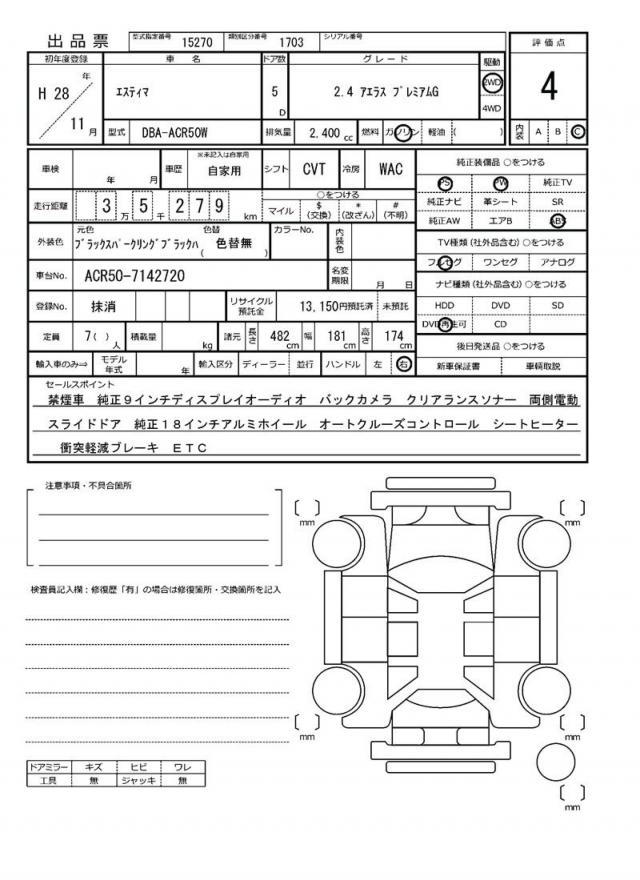 出品票 型式指定番号 15270 類別区分番号 1703 シリアル番号
初年度登録 車名 ドア数 グレード 駆動 評価点
H 28 年 エスティマ 5 D 2.4 アエラス プレミアムG 2WD 4
4WD
11 月 型式 DBA-ACR50W 排気量 2,400 cc 燃料 ガソリン 軽油 ( ) 内装 A B C
車検 年 月 車歴 ※未記入は自家用 自家用 シフト CVT 冷房 WAC 純正装備品 ○をつける
PS PW 純正TV
走行距離 3 万 5 千 2 7 9 km ○をつける 純正ナビ 革シート SR
マイル $(交換) *(改ざん) #(不明) 純正AW エアB ABS
外装色 元色 色替 カラーNo. 内装色 TV種類(社外品含む)○をつける
ブラックスパークリングブラックパ ( 色替無 ) フルセグ ワンセグ アナログ
車台No. ACR50-7142720 名変期限 月 日 ナビ種類(社外品含む)○をつける
登録No. 抹消 リサイクル預託金 13,150円預託済 未預託 HDD DVD SD
DVD再生可 CD
定員 7( )人 積載量 kg 諸元 長さ 482 cm 幅 181 cm 高さ 174 cm 後日発送品 ○をつける
輸入車のみ⇒ モデル年式 年 輸入区分 ディーラー 並行 ハンドル 左 右 新車保証書 車輌取説
セールスポイント
禁煙車 純正9インチディスプレイオーディオ バックカメラ クリアランスソナー 両側電動
スライドドア 純正18インチアルミホイール オートクルーズコントロール シートヒーター
衝突軽減ブレーキ ETC
注意事項・不具合箇所
mm mm
検査員記入欄:修復歴「有」の場合は修復箇所・交換箇所を記入
mm mm
ドアミラー キズ ヒビ ワレ
工具 無 ジャッキ 無
mm